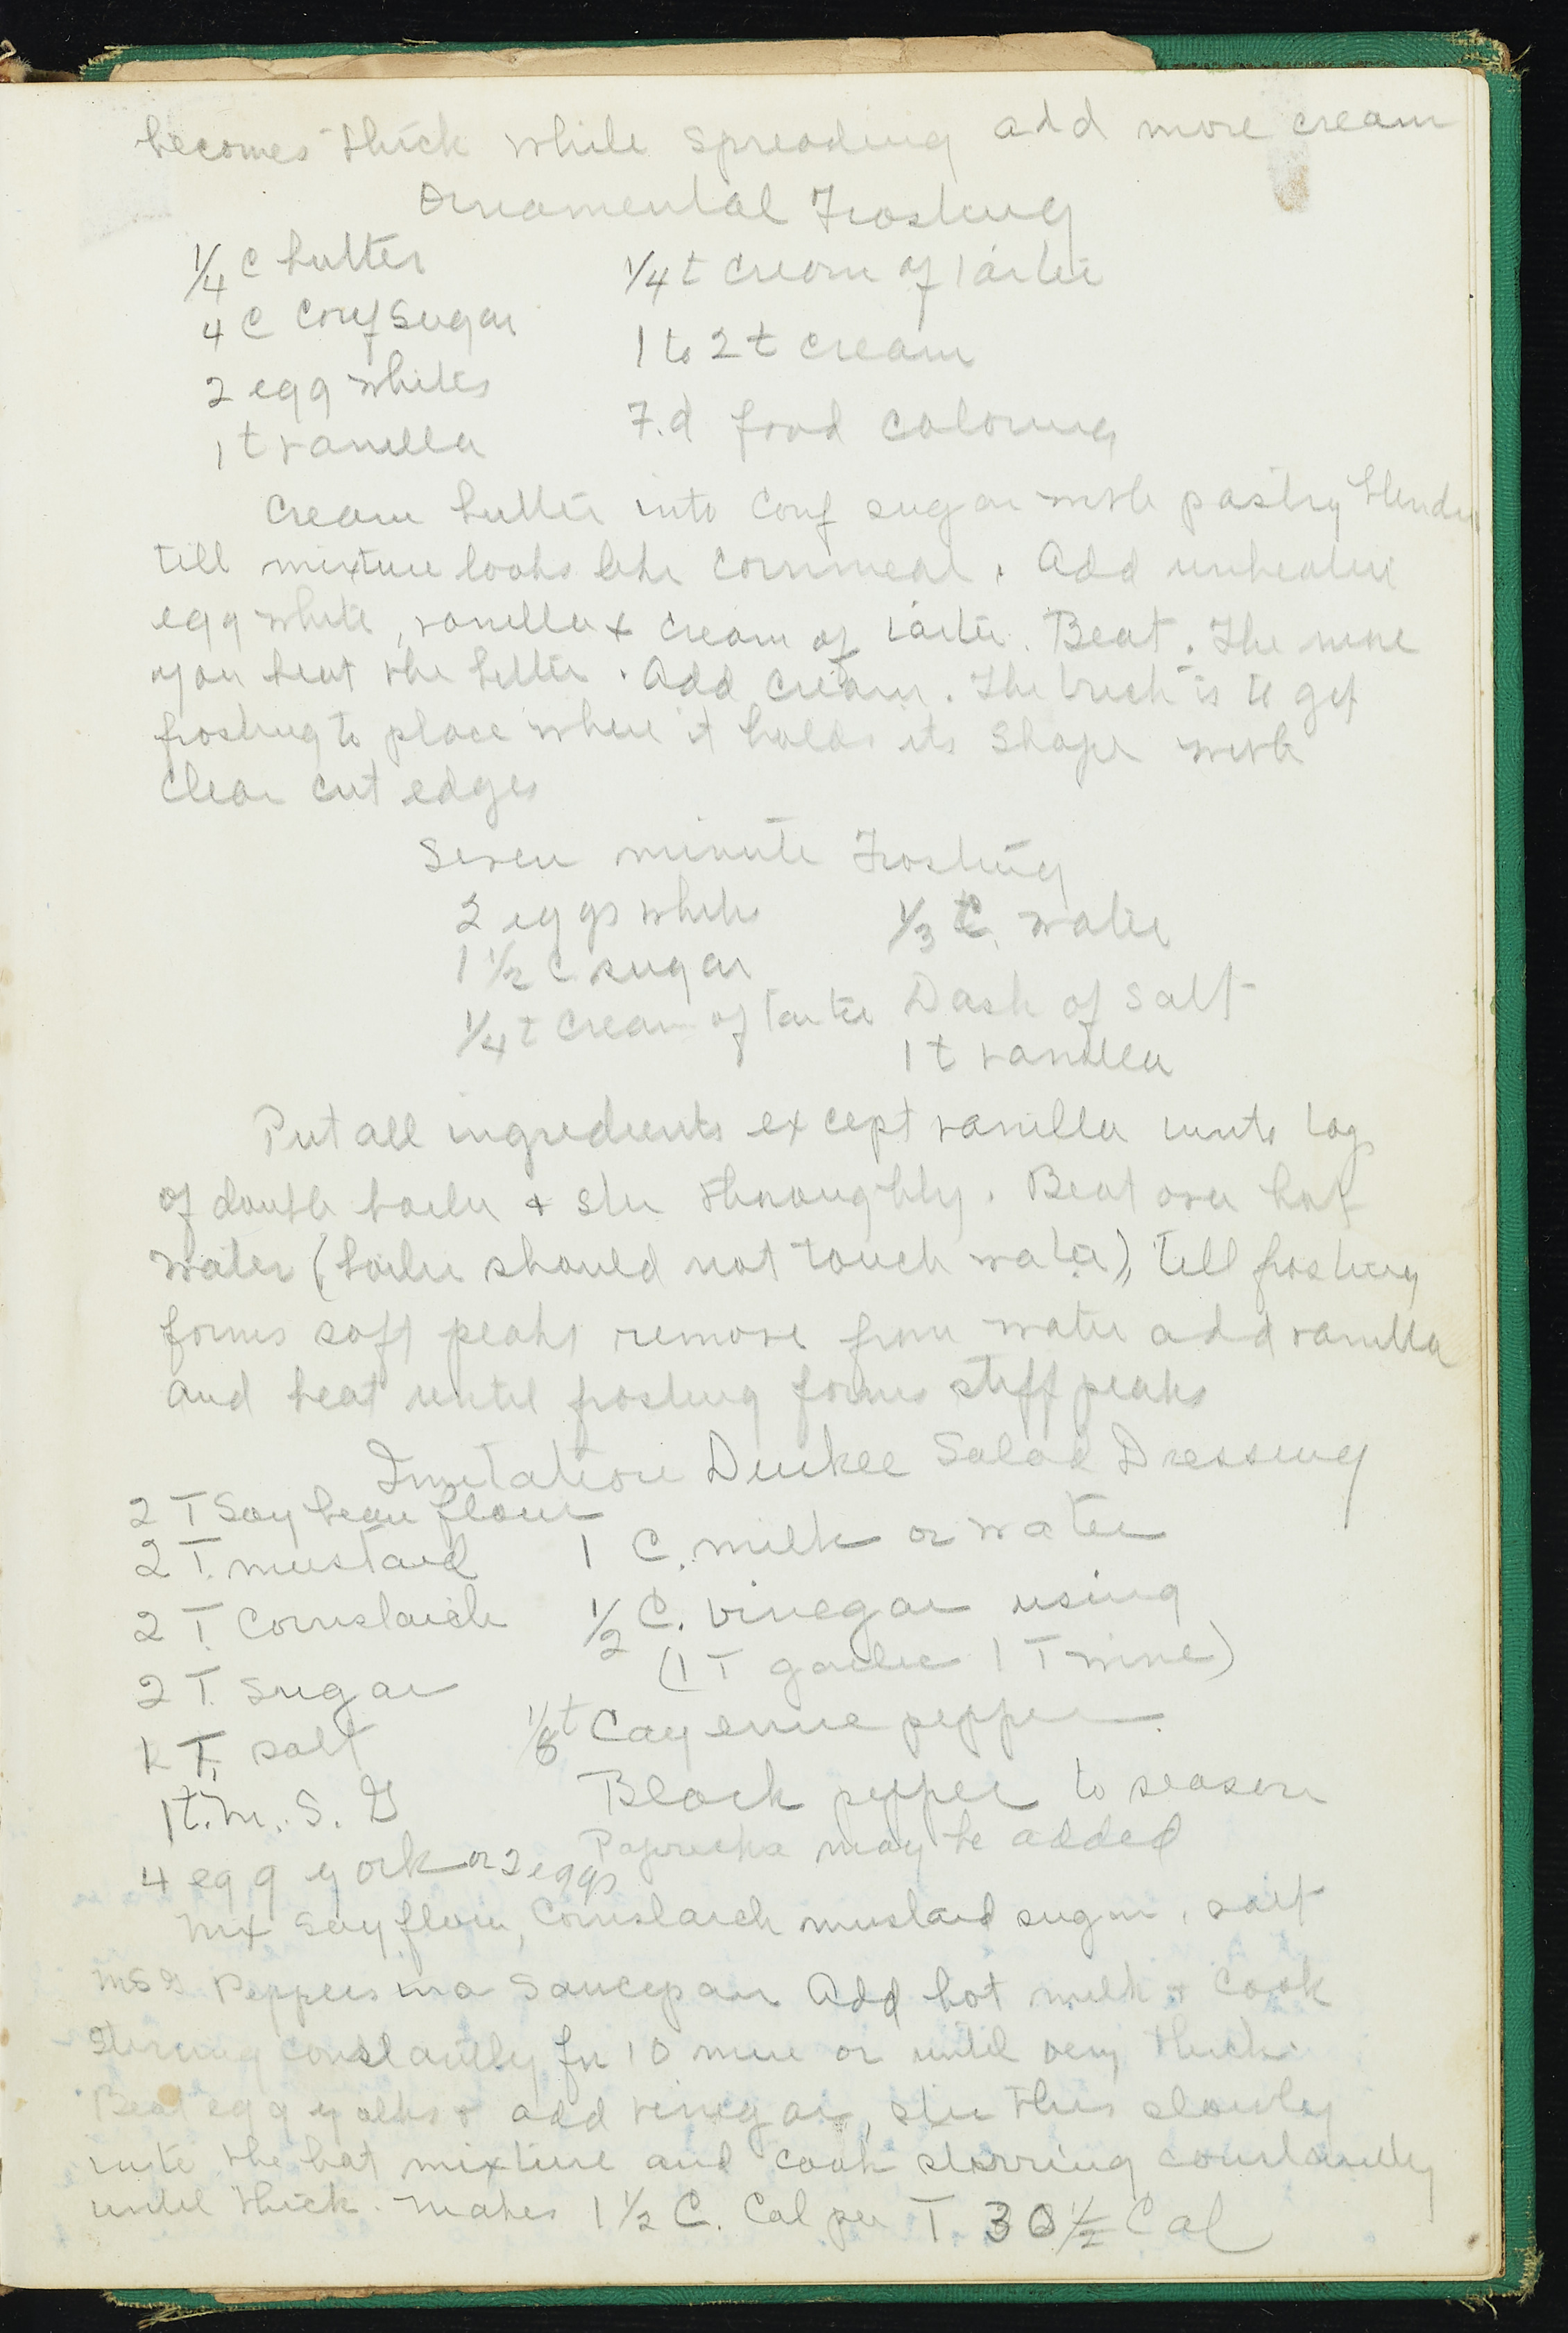 becomes thick while spreading add more cream
Ornamental Frosting
1/4 C butter
4 C Conf Sugar
2 egg whites
1 t vanilla
1/4 t Cream of tarter
1 to 2 t cream
F.d food coloring
Cream butter into Conf sugar with pastry blender
till mixture looks like cornmeal. Add unbeaten
egg white, vanilla + cream of tarter. Beat. The more
you beat the better. Add cream. The trick is to get
frosting to place where it holds its shape with
clear cut edges
Seven minute Frosting
2 eggs whites
1 1/2 C sugar
1/4 t Cream of tarter
1/3 C. water
Dash of Salt
1 t vanilla
Put all ingredients except vanilla into top
of double boiler + stir thoroughly. Beat over hot
water (boiler should not touch water), till frosting
forms soft peaks remove from water add vanilla
and beat until frosting forms stiff peaks
Imitation Durkee Salad Dressing
2 T Soy bean flour
2 T. mustard
2 T. Cornstarch
2 T. Sugar
T. salt
1 t. M. S. G
4 egg york or 2 eggs
1 C. milk or water
1/2 C. vinegar using
(1 T garlic 1 T wine)
1/8 t Cayenne pepper
Black pepper to season
Papricka may be added
Mix Soy flour, Cornstarch mustard sugar, salt
MSG Peppers in a Saucepan Add hot milk + Cook
stirring constantly for 10 min or until very thick.
Beat egg yolks + add vinegar, stir this slowly
into the hot mixture and cook stirring constantly
until thick. Makes 1 1/2 C. Cal per T 30 1/2 Cal